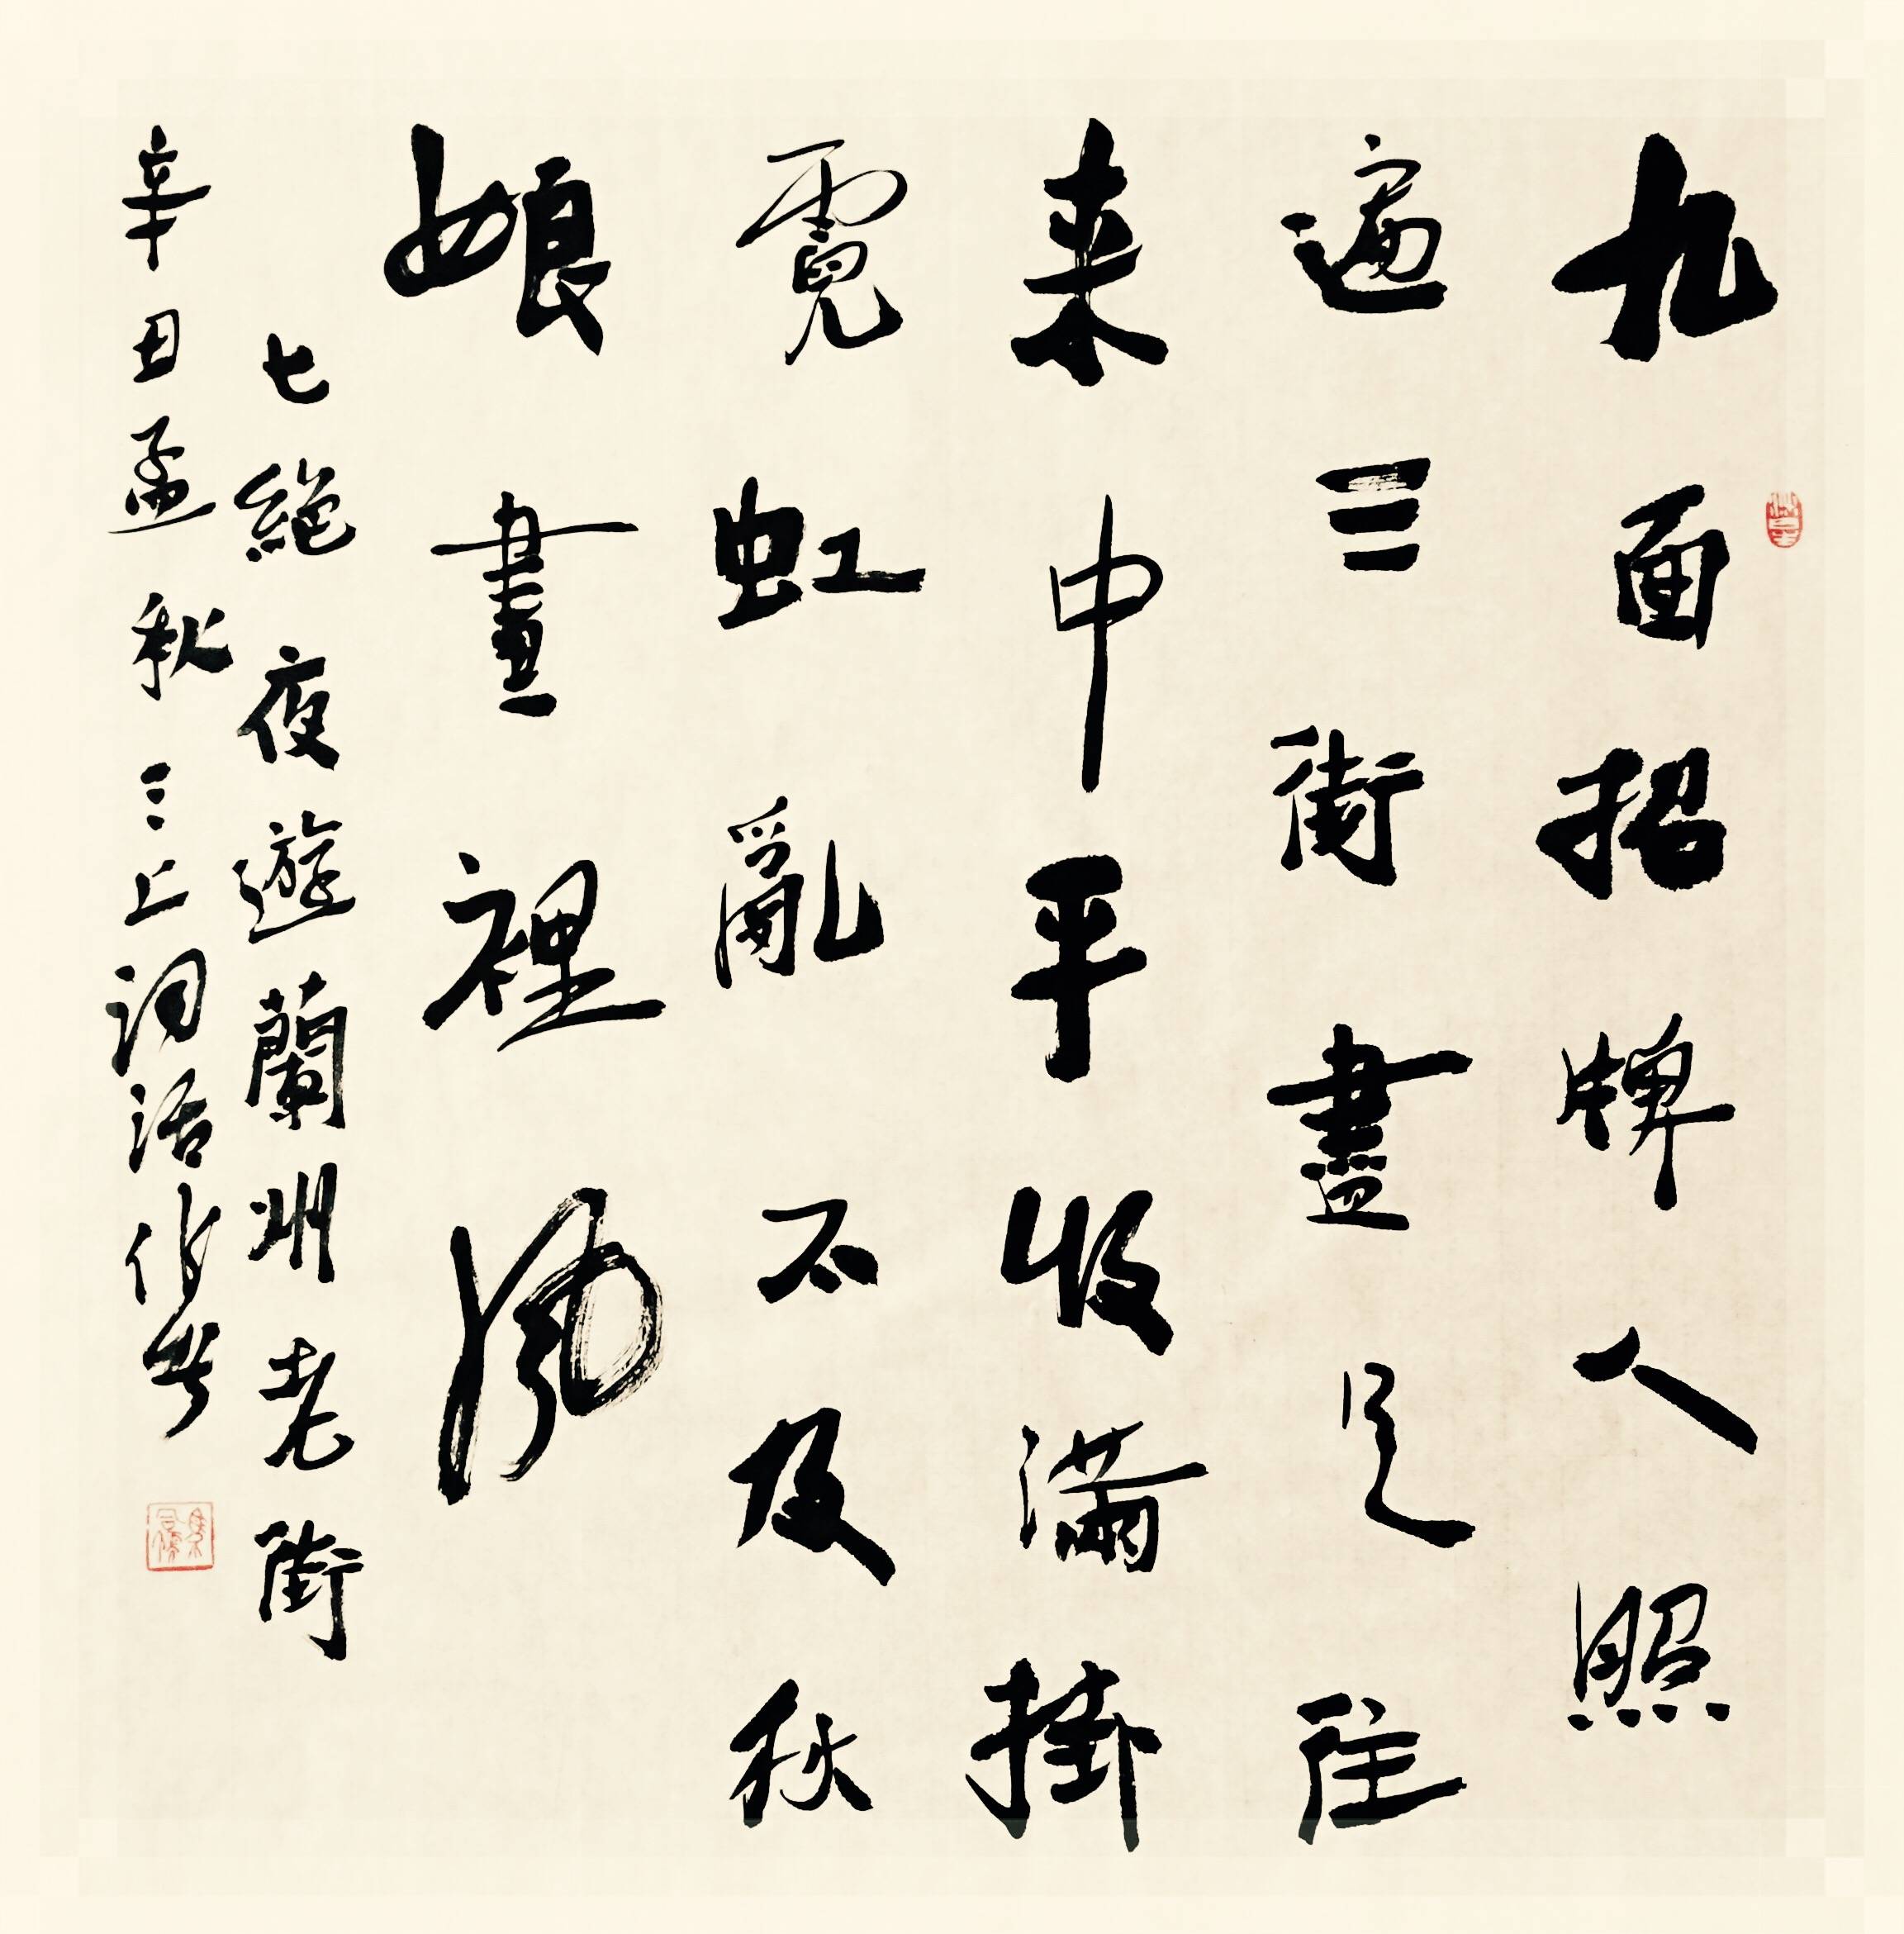 九面招牌人照
遍三街盡是往
来中平收滿掛
霓虹亂不及秋
娘畫裡風
七絕夜遊蘭州老街
辛丑孟秋三上詞話